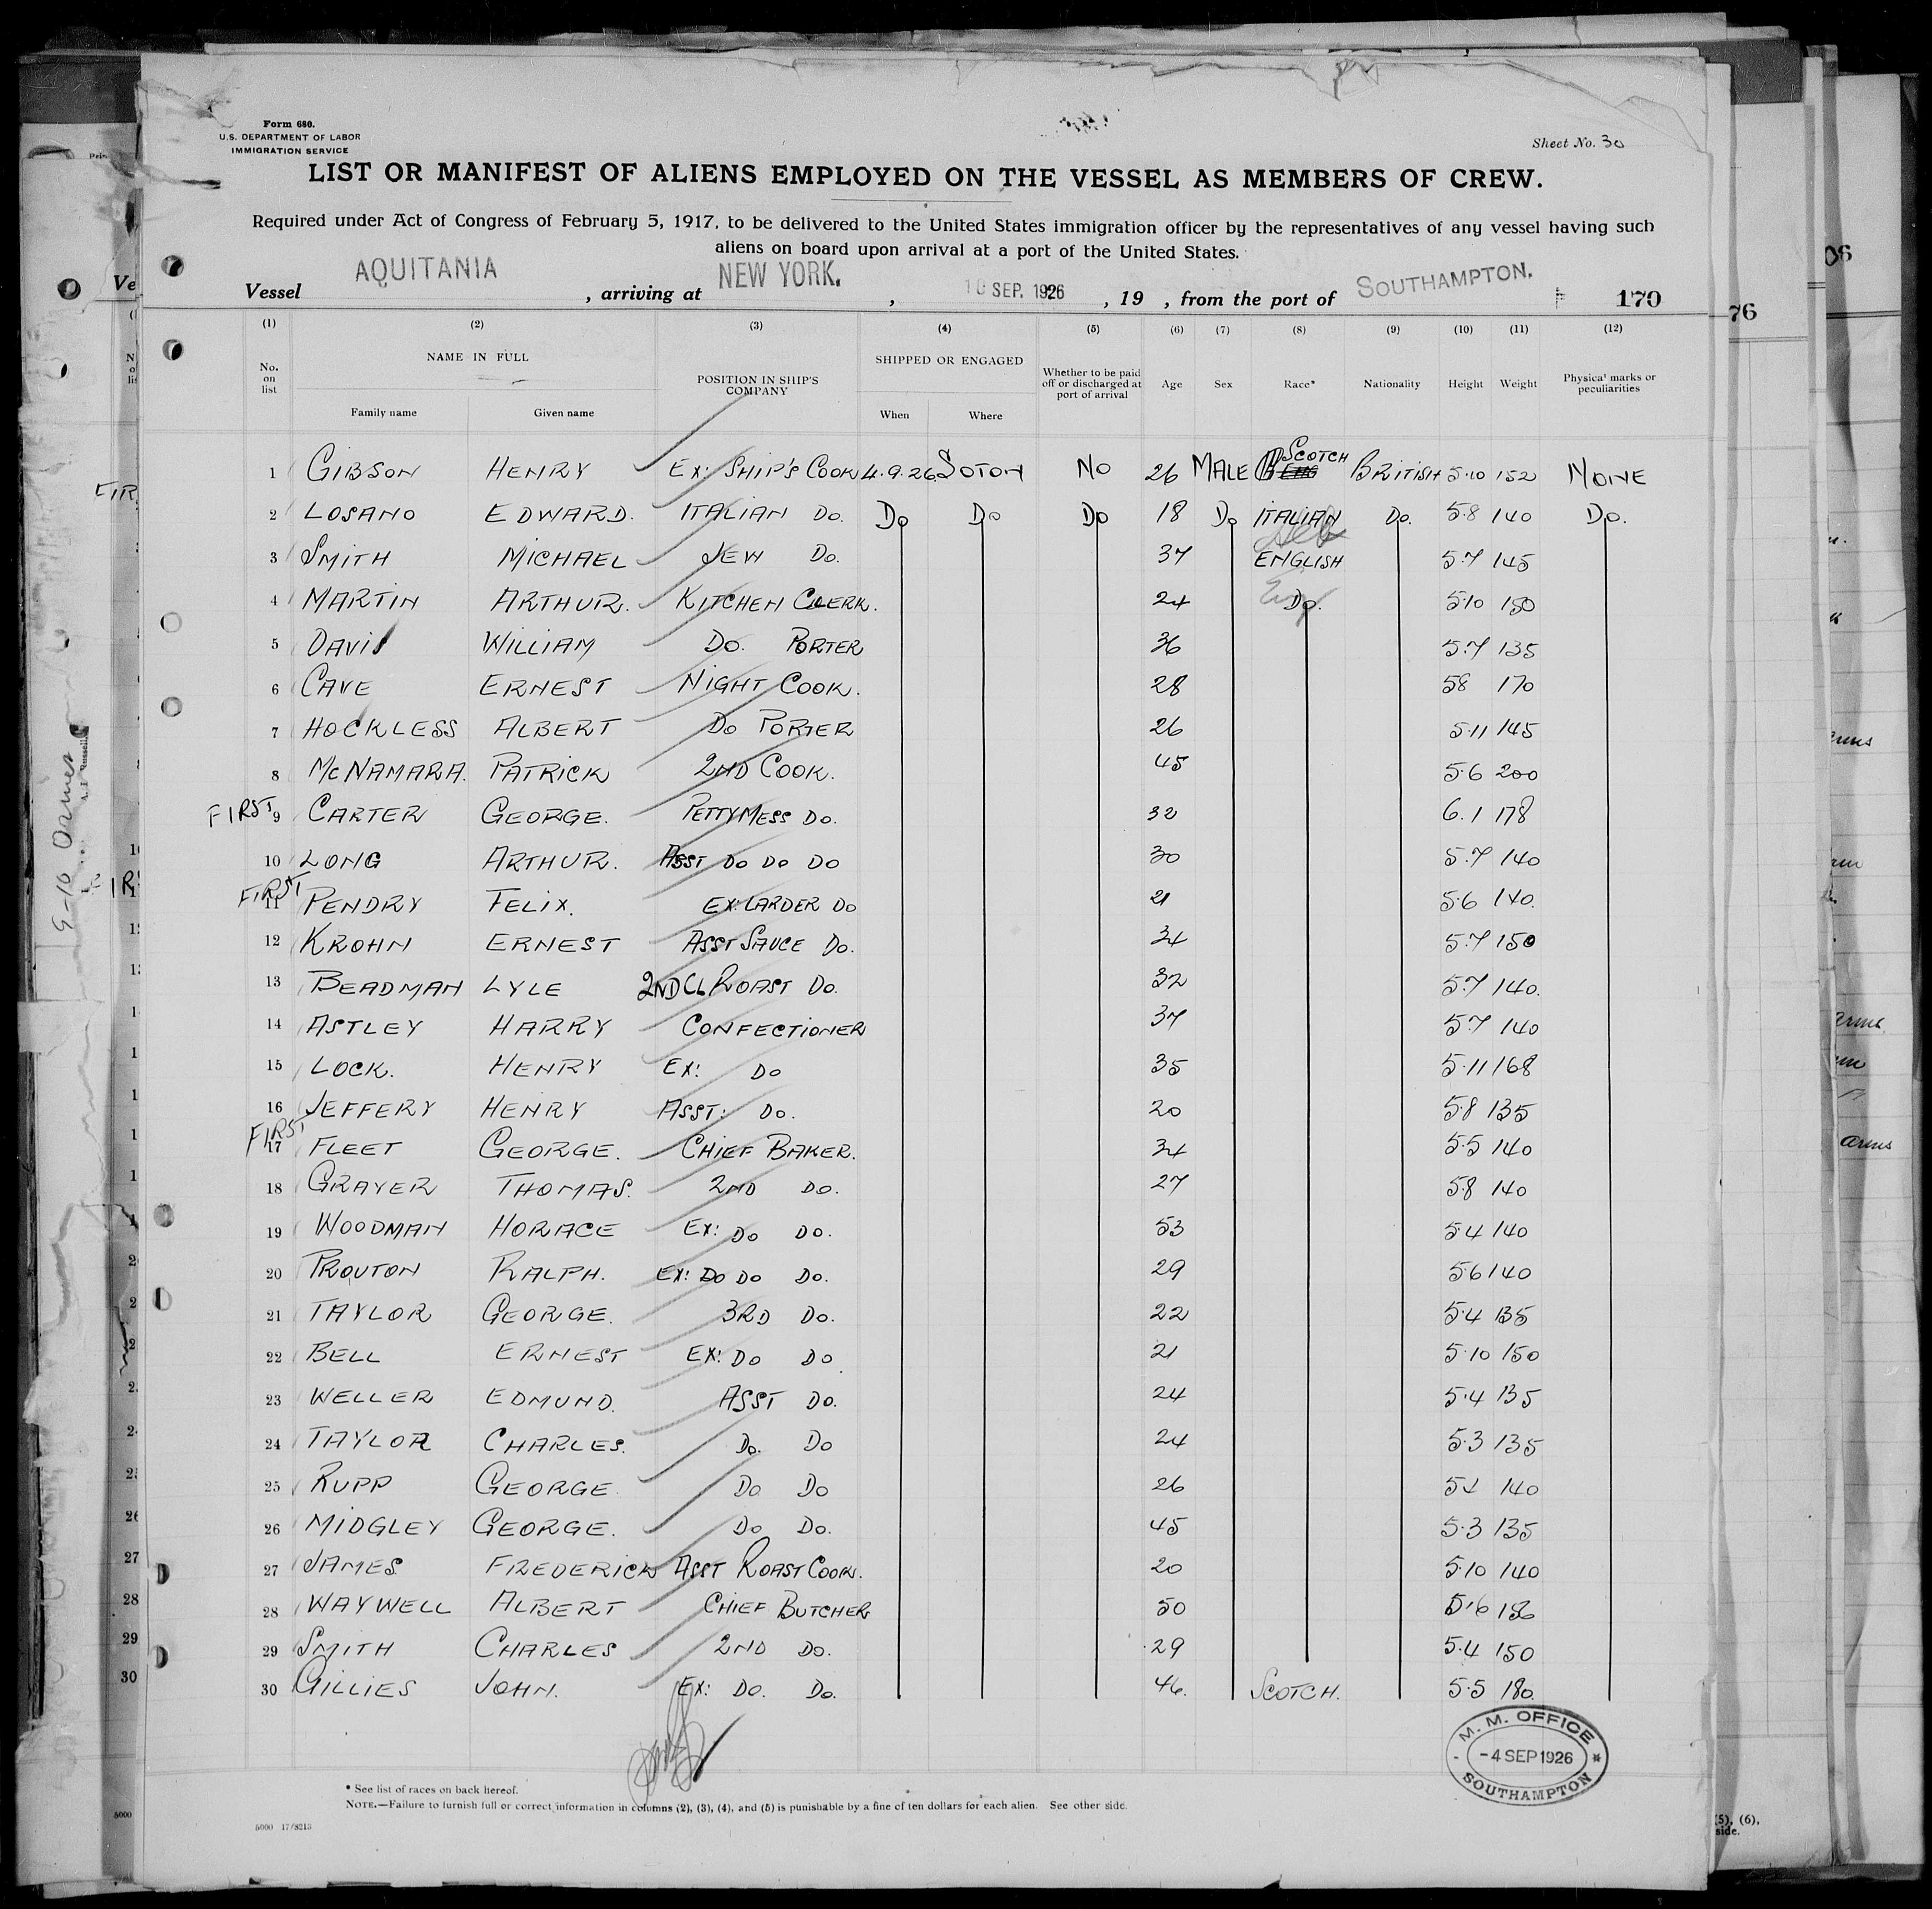 Form 680.
U.S. DEPARTMENT OF LABOR
IMMIGRATION SERVICE
Sheet No. 30
LIST OR MANIFEST OF ALIENS EMPLOYED ON THE VESSEL AS MEMBERS OF CREW.
Required under Act of Congress of February 5, 1917, to be delivered to the United States immigration officer by the representatives of any vessel having such
aliens on board upon arrival at a port of the United States.
Vessel AQUITANIA, arriving at NEW YORK., 10 SEP. 1926, 19 , from the port of SOUTHAMPTON. 170
(1) (2) (3) (4) (5) (6) (7) (8) (9) (10) (11) (12)
No. on list NAME IN FULL Family name Given name POSITION IN SHIP'S COMPANY SHIPPED OR ENGAGED When Where Whether to be paid off or discharged at port of arrival Age Sex Race* Nationality Height Weight Physical marks or peculiarities
1 GIBSON HENRY EX: SHIP'S COOK 4.9.26 SOTON NO 26 MALE SCOTCH BRITISH 5.10 152 NONE
2 LOSANO EDWARD. ITALIAN DO. DO DO DO 18 DO ITALIAN DO. 5.8 140 DO.
3 SMITH MICHAEL JEW DO. 37 ENGLISH 5.7 145
4 MARTIN ARTHUR. KITCHEN CLERK. 24 DO. 5.10 150
5 DAVIS WILLIAM DO. PORTER 36 5.7 135
6 CAVE ERNEST NIGHT COOK. 28 58 170
7 HOCKLESS ALBERT DO PORTER 26 5.11 145
8 MCNAMARA. PATRICK 2ND COOK. 45 5.6 200
FIRST 9 CARTER GEORGE. PETTY MESS DO. 32 6.1 178
10 LONG ARTHUR. ASST DO DO DO 30 5.7 140
FIRST 11 PENDRY FELIX. EX: LARDER DO 21 5.6 140.
12 KROHN ERNEST ASST SAUCE DO. 34 5.7 150
13 BEADMAN LYLE 2ND CL ROAST DO. 32 5.7 140.
14 ASTLEY HARRY CONFECTIONER 37 5.7 140
15 LOCK. HENRY EX: DO 35 5.11 168
16 JEFFERY HENRY ASST: DO. 20 5.8 135
FIRST 17 FLEET GEORGE. CHIEF BAKER. 34 5.5 140
18 GRAYER THOMAS. 2ND DO. 27 5.8 140
19 WOODMAN HORACE EX: DO DO. 53 5.4 140
20 PROUTON RALPH. EX: DO DO DO. 29 5.6 140
21 TAYLOR GEORGE. 3RD DO. 22 5.4 135
22 BELL ERNEST EX: DO DO 21 5.10 150
23 WELLER EDMUND. ASST DO. 24 5.4 135
24 TAYLOR CHARLES. DO. DO 24 5.3 135
25 RUPP GEORGE. DO DO 26 5.4 140
26 MIDGLEY GEORGE. DO DO. 45 5.3 135
27 JAMES FREDERICK ASST ROAST COOK. 20 5.10 140
28 WAYWELL ALBERT CHIEF BUTCHER 50 5.6
29 SMITH CHARLES 2ND DO. 29 5.4 150
30 GILLIES JOHN. EX: DO. DO. 46. SCOTCH. 5.5 180.
M. M. OFFICE
-4 SEP 1926
SOUTHAMPTON
* See list of races on back hereof.
NOTE.—Failure to furnish full or correct information in columns (2), (3), (4), and (5) is punishable by a fine of ten dollars for each alien. See other side.
5000 17/8213